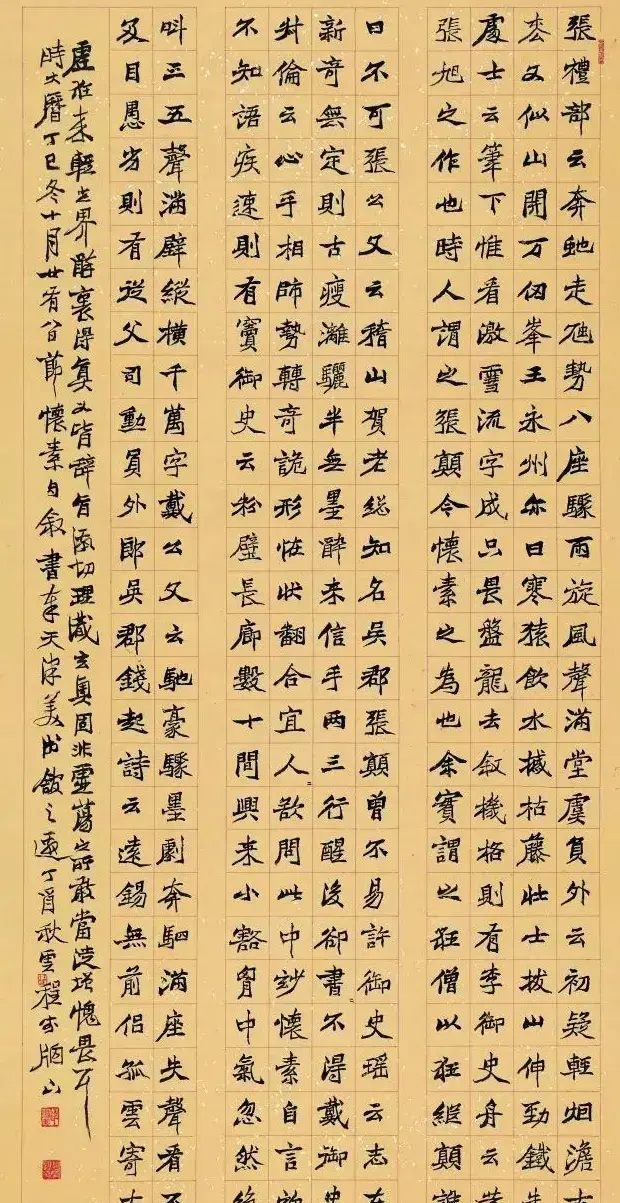 張禮部云奔虵走虺勢入座驟雨旋風聲滿堂盧員外云初疑輕烟澹古
松又似山開万仞峯王永州曰寒猿飲水撼枯藤壯士拔山伸勁鐵
處士云筆下惟看激電流字成只畏盤龍去敘機格則有李御史舟云昔
張旭之作也時人謂之張顛今懷素之為也余實謂之狂僧以狂繼顛誰
曰不可張公又云稽山賀老総知名吳郡張顛曾不易許御史瑶云志在
新奇無定則古瘦灕驪半無墨醉来信手兩三行醒後卻書不得戴御史
叔倫云心手相師勢轉奇詭形恠狀翻合宜人〻欲問此中妙〻懷素自言初
不知語疾速則有竇御史云粉壁長廊數十間興来小豁胷中氣忽然
叫三五聲滿壁縱横千萬字戴公又云馳豪驟墨劇奔駟滿座失聲看不
及目愚劣則有從父司勳員外郎吳郡錢起詩云遠錫無前侶孤雲寄太
虛狂来輕世界醉裏得真如皆辭旨激切理識玄奧固非虛蕩之所敢當徒增愧畏耳
時大曆丁巳冬十月廿有八日節懷素自敘書奉天津美術館之邀丁酉秋雲程書於山